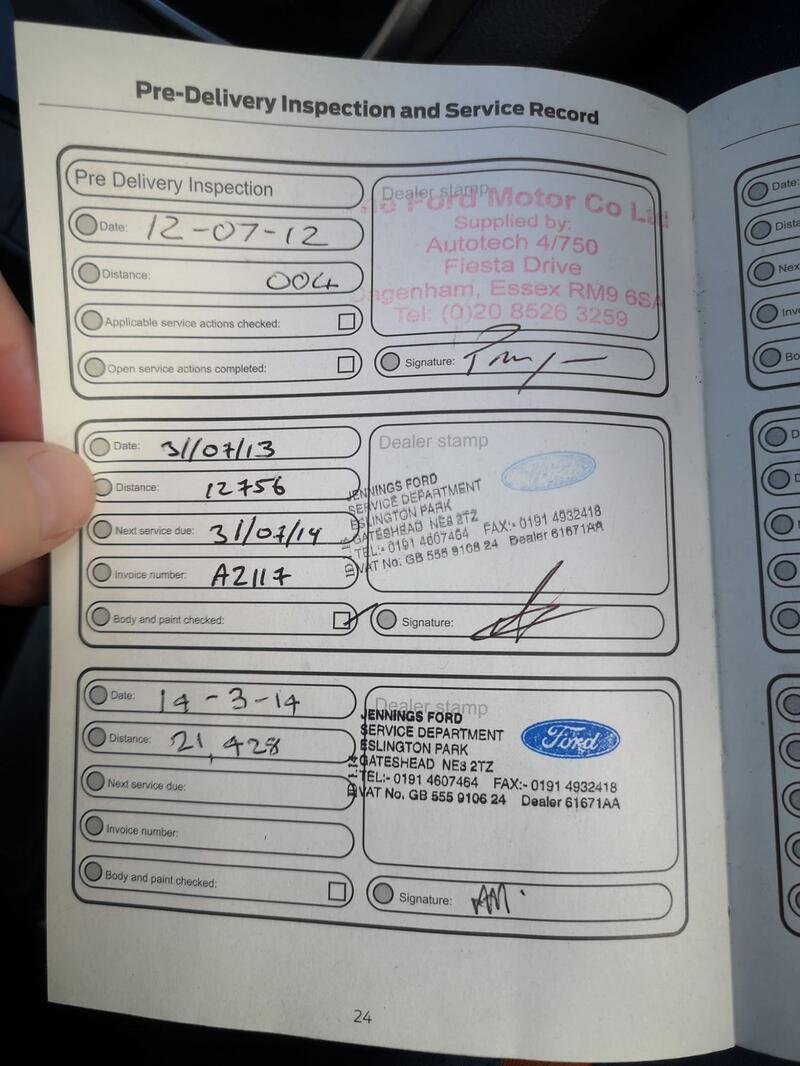 Pre-Delivery Inspection and Service Record
Pre Delivery Inspection
Date: 12-07-12
Distance: 004
Applicable service actions checked:
Open service actions completed:
Dealer stamp
Ford Motor Co Ltd
Supplied by:
Autotech 4/750
Fiesta Drive
Dagenham, Essex RM9 6SA
Tel: (0)20 8526 3259
Signature:
Date: 31/07/13
Distance: 12756
Next service due: 31/07/14
Invoice number: A2117
Body and paint checked:
Dealer stamp
JENNINGS FORD
SERVICE DEPARTMENT
ESLINGTON PARK
GATESHEAD NE8 2TZ
TEL:- 0191 4607464 FAX:- 0191 4932418
VAT No: GB 555 9106 24 Dealer 61671AA
Signature:
Date: 14-3-14
Distance: 21,428
Next service due:
Invoice number:
Body and paint checked:
Dealer stamp
JENNINGS FORD
SERVICE DEPARTMENT
ESLINGTON PARK
GATESHEAD NE8 2TZ
TEL:- 0191 4607464 FAX:- 0191 4932418
VAT No. GB 555 9106 24 Dealer 61671AA
Ford
Signature: AM
24
Date:
Dista
Nex
Inv
Bo
D
D